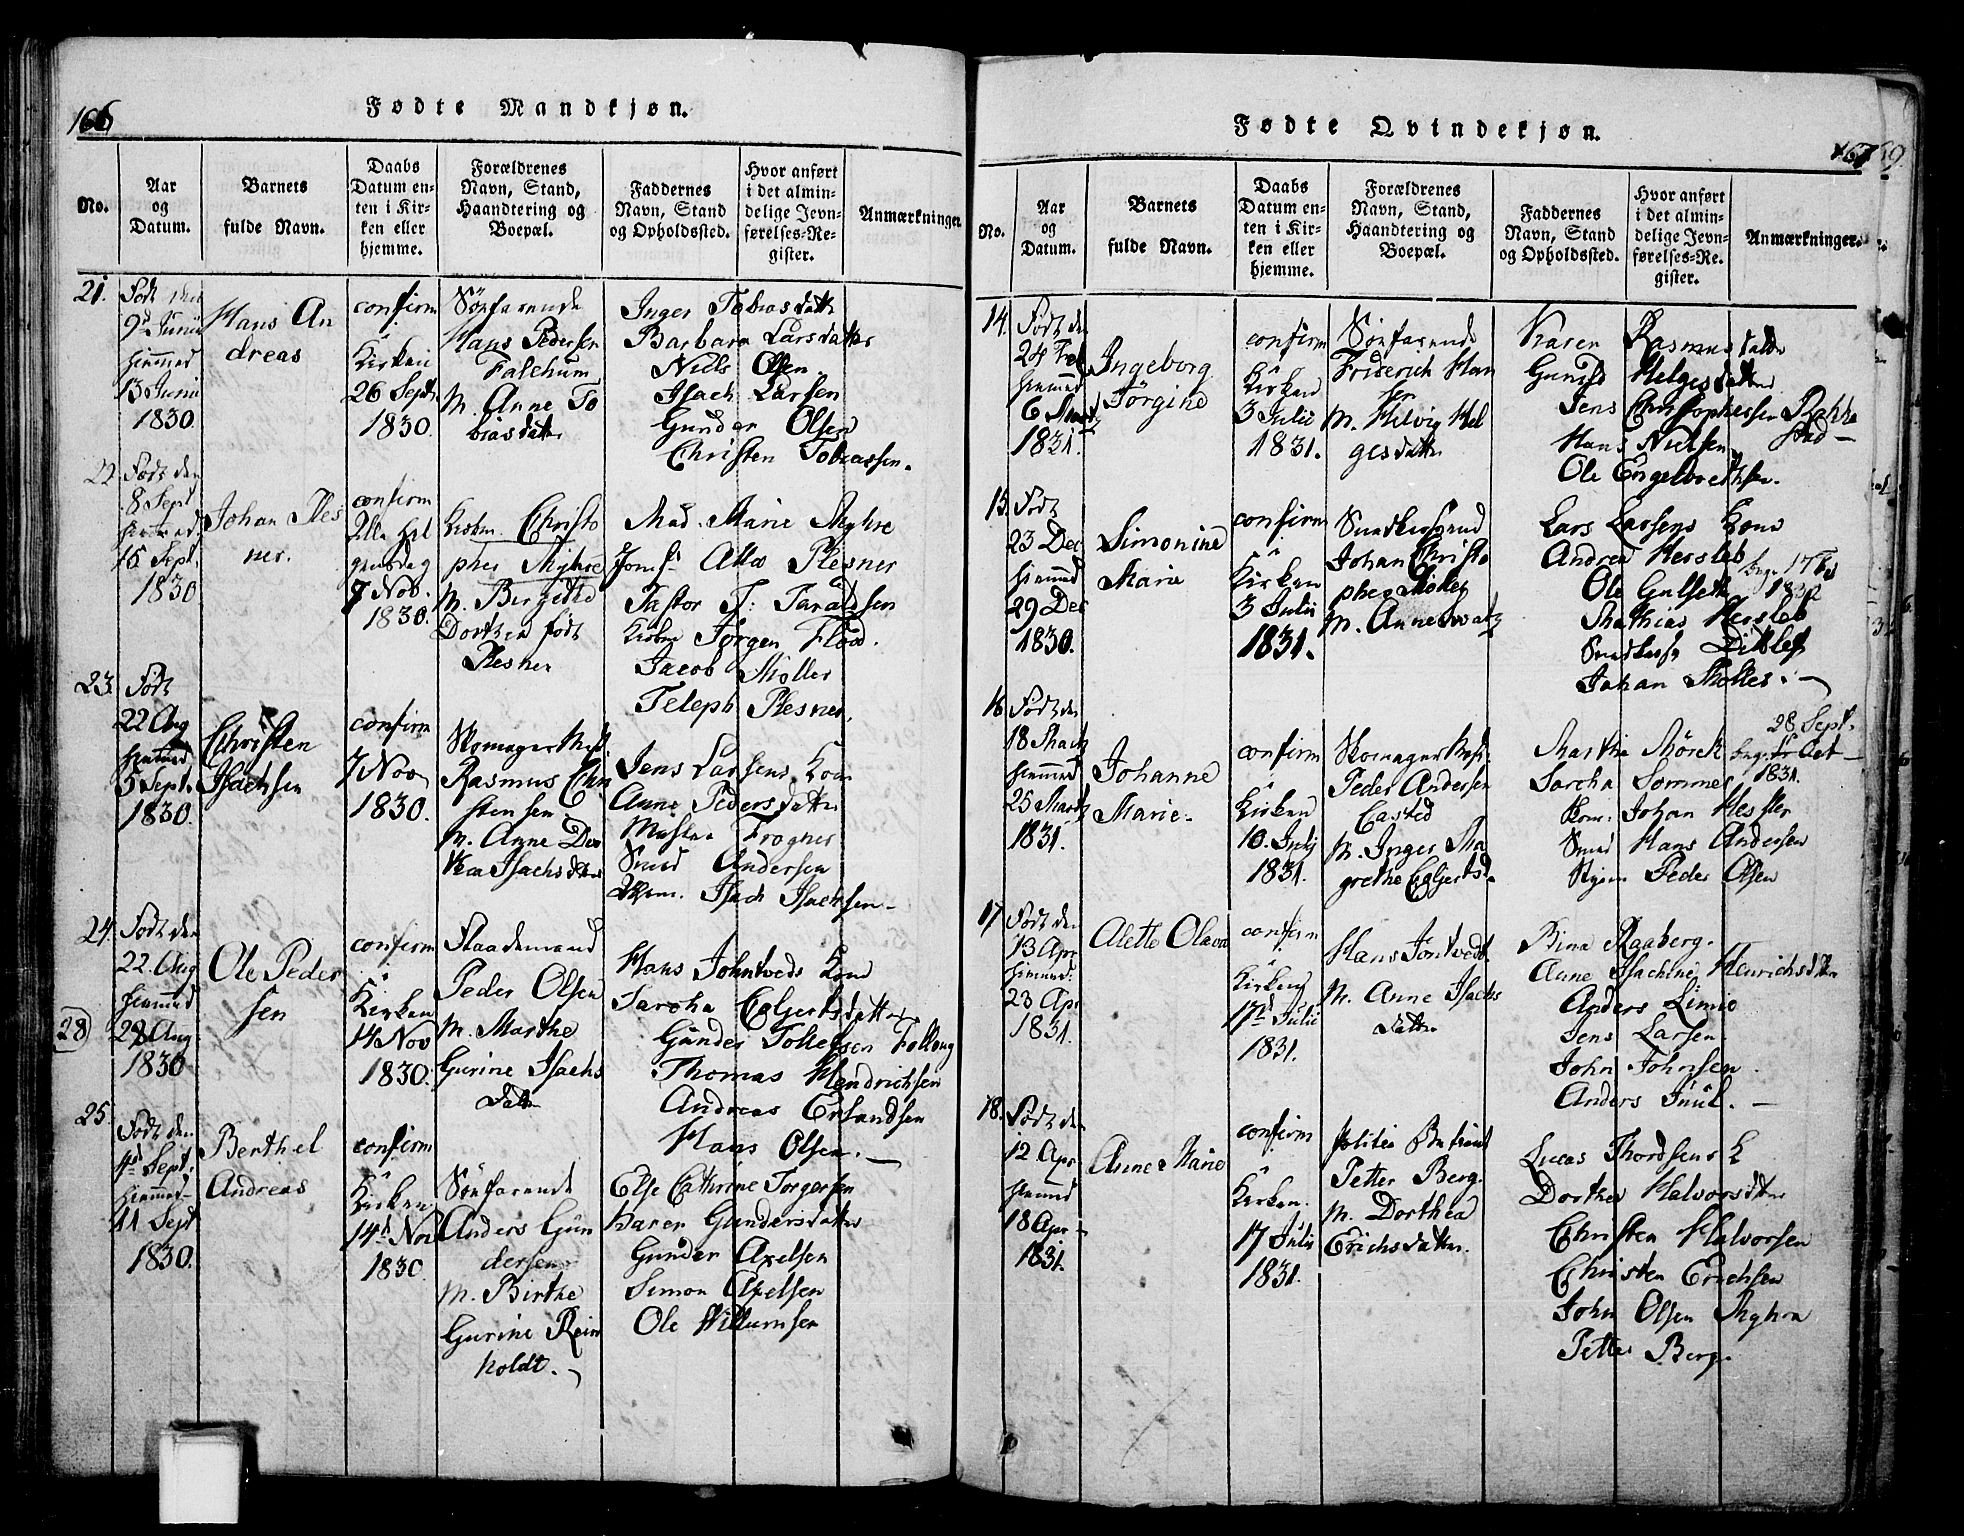 166
Fødte Mandkjøn.
No.
Aar
og
Datum.
Barnets
fulde Navn.
Daabs
Datum en-
ten i Kir-
ken eller
hjemme.
Forældrenes
Navn, Stand,
Haandtering og
Boepæl.
Faddernes
Navn, Stand
og Opholdssted.
Hvor anført
i det almin-
delige Jevn-
førelses-Re-
gister.
Anmærkninger.
21.
Født den
9de Junii
hiemmed
13 Junii
1830
Hans An
dreas
confirm
i
Kirken
26 Septr
1830.
Søefarende
Hans Pedersen
Falchum
M. Anne To
biasdatter
Inger Tobiasdatter
Barbara Larsdatter
Niels Olsen.
Isach Larsen
Gunder Olsen
Christen Tobiassen.
22
Født den
8 Sept
hiemmed
15 Sept.
1830
Johan Ples
ner.
confirm
Alle Hel
gensdag
7 Nov.
1830.
Kiøbm. Christo
pher Myhre
M. Birgitte
Dorthea født
Plesner
Mad. Marie Myhre
Jomf. Plesner
Pastor T: Taraldsen
Kiøbm Jørgen Flood.
Jacob Møller
Teleph Plesner.
23.
Født
22 Aug
hiemmed
5 Sept.
1830.
Christen
Isachsen
confirm
7 Nov
1830.
Skomager Mest.
Rasmus Chri
stensen
M. Anne Dor
thea Isachsdatter
Jens Larsens Kone
Anne Pedersdatter
Frogner
Smed Andersen
Isach Isachsen.
24.
Født den
22 Aug
hiemmed
29 Aug
1830
28
Ole Peder
sen
confirm
i
Kirken
14 Nov
1830.
Peder Olsen
M. Marthe
Gurine Isachs
Datter
Hans Johntveds Kone
Sarcha Egljertsdatter
Gunder Tollefsen Follaug
Thomas Hendrichsen
Andreas Erlandsen
Hans Olsen.
25.
Født den
4de Sept.
hiemmed
11 Sept
1830.
Berthel
Andreas
confirm
i
Kirken
14de Nov
1830
Søefarende
Anders Gun
dersen
M. Birthe
Gurine Rein
holdt.
Else Cathrine Torgersen
Karen Gundersdatter
Gunder Axelsen
Simon Axelsen
Ole Willumsen
Fødte Qvindekjøn.
167
59
No.
Aar
og
Datum.
Barnets
fulde Navn.
Daabs
Datum en-
ten i Kir-
ken eller
hjemme.
Forældrenes
Navn, Stand,
Haandtering og
Boepæl.
Faddernes
Navn, Stand
og Opholdssted.
Hvor anført
i det almin-
delige Jevn-
førelses-Re-
gister.
Anmærkninger.
14.
Født den
24 Feb
hiemmed
6 Martz
1831.
Ingeborg
Jørgine
confirm
i
Kirken
3 Julii
1831.
Søefarende
Friderich Han
sen
M. Helvig Hel
gesdatter
Karen Rasmusdatter
Gunild Helgesdatter
Jens Christophersen
Hans Nielsen
Ole Engelbrethsen.
15.
Født
23 Dec
hiemmed
29 Dec
1830.
Simonine
Maria
confirm
i
Kirken
3 Julii
1831.
Snedkersvend
Johan Christo
pher Møller
M. Anne
Lars Larsens Kone
Andrea Hersleb
Ole Gulseth
Mathias Hersleb
Ditlef
Johan Møller.
1832
16
Født den
18 Martz
hiemmed
25 Martz
1831.
Johanne
Marie.
confirm
i
Kirken
10. Julij
1831.
Skomager Mest:
Peder Andersen
Easted
M. Inger Ma
grethe Egljertsd.
Marthe Mørck
Sarcha Sommer
Johan Hesler
Smed Hans Andersen
Peder Olsen
28 Sept.
1831.
17
Født den
13 Apr
hiemmed:
23 Apr
1831.
Alette Olava
confirm
i
Kirken
17de Julii
1831.
Hans Jontvedt
M. Anne Isachs
Datter
Bina Raaberg.
Anne Isachine Henrichsdatter
Anders Limie
Jens Larsen.
John Johnsen
Anders Juul.
18.
Født den
12. Apr
hiemmed
18 Apr
1831.
Anne Marie
confirm
i
Kirken.
17 Julii
1831.
Politie Betient
Petter Berg.
M. Dorthea
Erichsdatter.
Lucas Thordsens K
Dorthea Halvorsdatter
Christen Halvorsen
Christen Erichsen
John Olsen Myhra
Petter Berg.